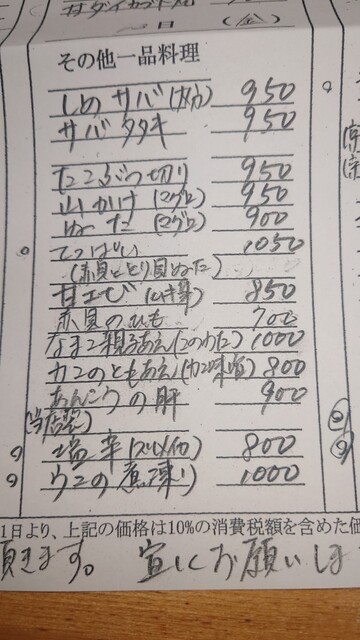 日 (金)
その他一品料理
しめサバ(大分) 950
サバタタキ 950
たこぶつ切り 950
山かけ(マグロ) 950
ぬーた(マグロ) 900
てっぱい 1050
(赤貝ととり貝ぬーた)
甘エビ 850
赤貝のひも 700
なまこ親子あえ(このわた) 1000
カニのともあえ(カニ味噌) 800
あんこうの肝 900
(当店製)
塩辛(スルメイカ) 800
ウニの煮凍り 1000
1日より、上記の価格は10%の消費税額を含めた価
頂きます。 宜しくお願いしま